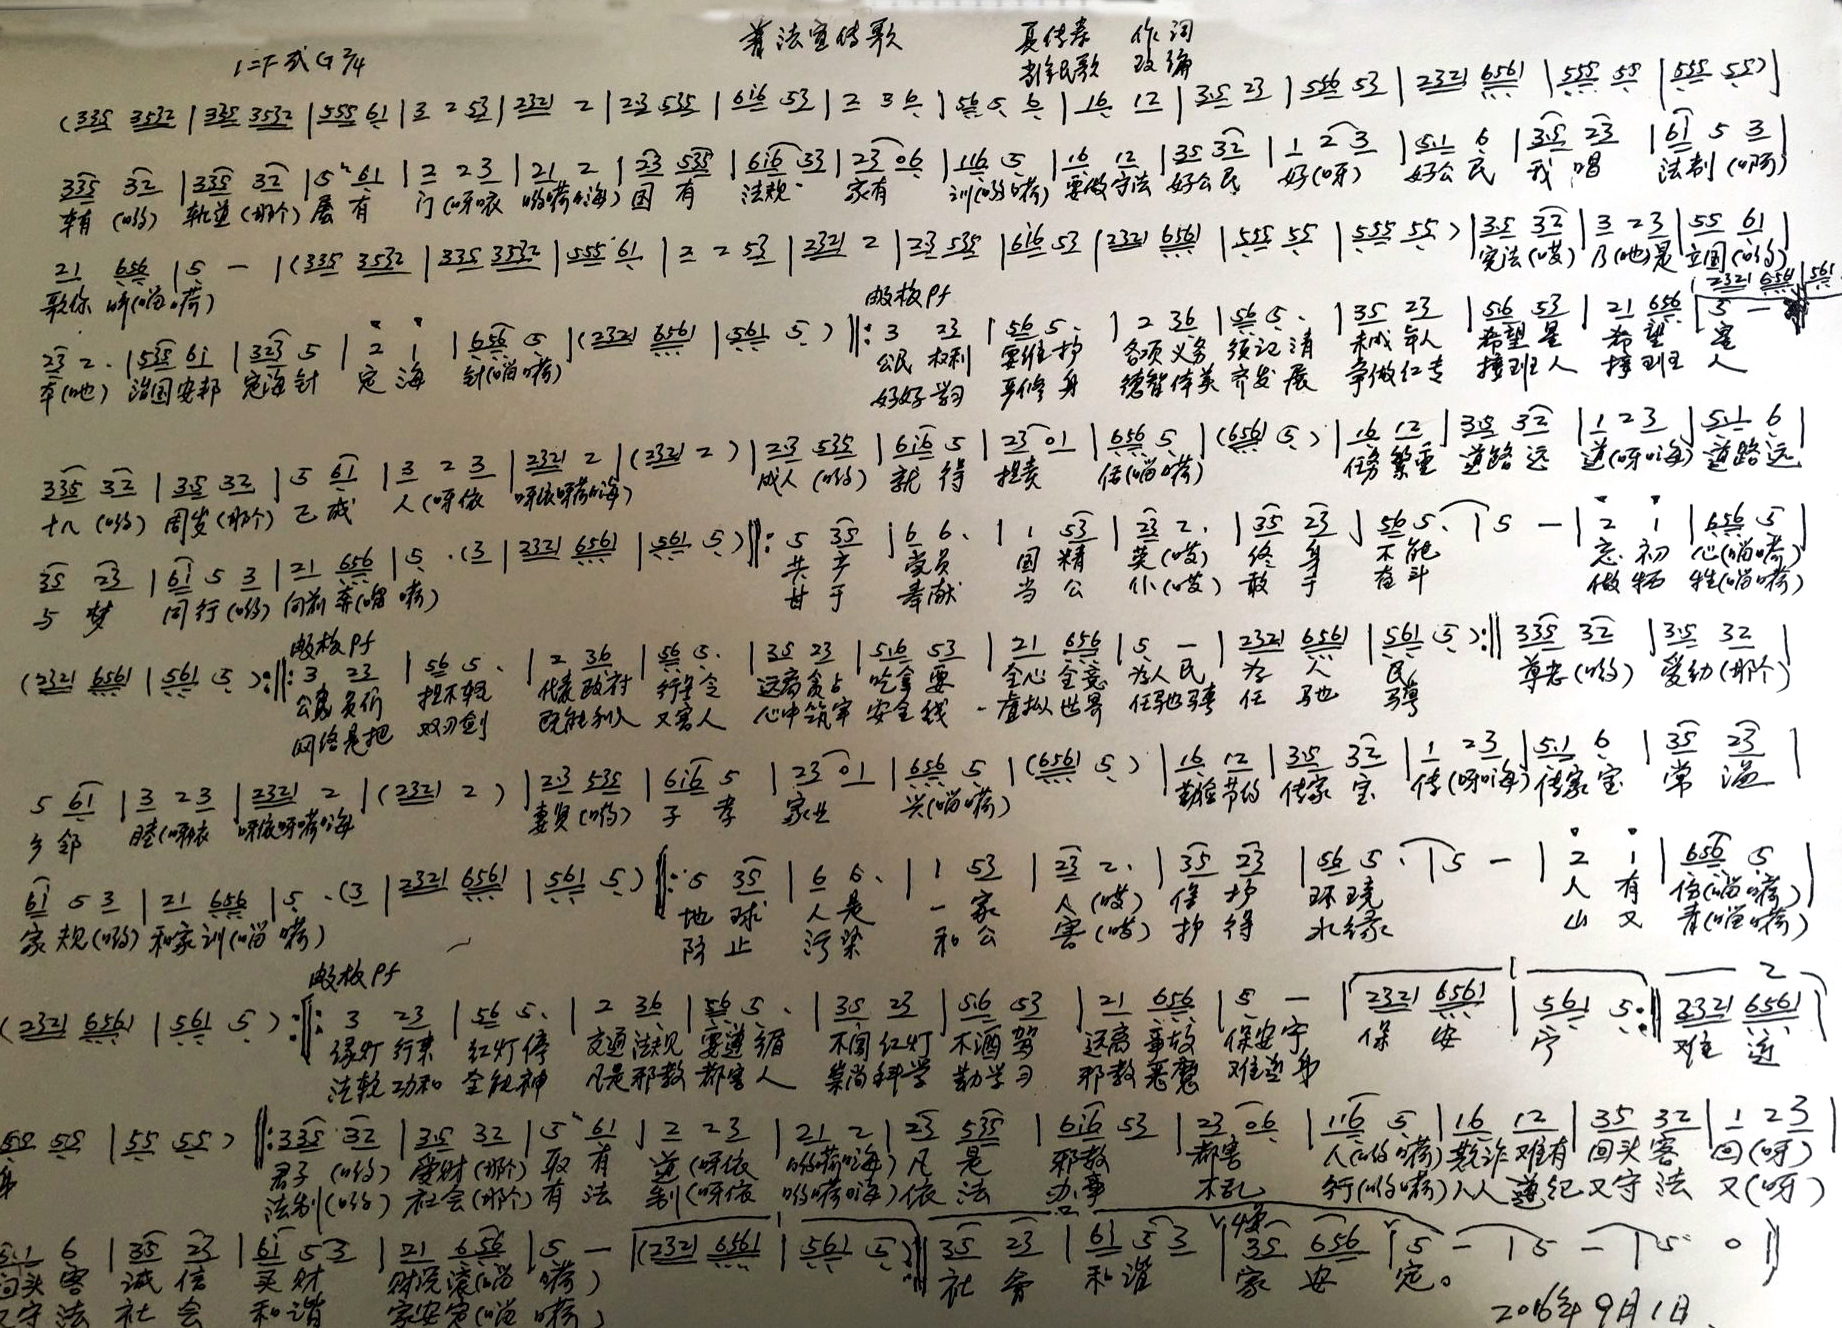 普法宣传歌 夏传寿 作词
1=F或G 2/4 民歌 改编
(335 3532 | 335 3532 | 555 61 | 3 2 53 | 2321 2 | 23 535 | 616 53 | 2 3 6 | 56 5 6 | 16 12 | 35 23 | 556 53 | 2321 6561 | 555 55 | 555 55) |
335 32 | 335 32 | 5 61 | 2 23 | 21 2 | 23 535 | 616 53 | 23 06 | 116 5 | 16 12 | 35 32 | 1 2 3 | 51 6 | 35 23 | 61 5 3 |
车有 (哟) 轨道 (那个) 屋 有 门 (呀咳 哟嗬嗨) 国 有 法规 家有 训(哟嗬) 要做守法 好公民 好(呀) 好公民 我 唱 法制 (啊)
21 656 | 5 - | (335 3532 | 335 3532 | 555 61 | 2 2 53 | 2321 2 | 23 535 | 616 53 | 2321 6561 | 555 55 | 555 55) | 35 32 | 3 23 | 55 61 |
歌你 听(喵嗬) 宪法(哎) 乃(吔)是 立国(哟)
略板Pf 2321 6561 | 561
23 2. | 535 61 | 323 5 | 2 1 | 656 5 | (2321 6561 | 561 5) ‖: 3 23 | 56 5. | 2 36 | 56 5. | 35 23 | 516 53 | 21 656 | 5 -
本(吔) 治国安邦 定海针 定 海 针(喵嗬) 公民 权利 要维护 各项义务 须记清 未成年人 希望星 希望 星
好好学习 严修身 德智体美 齐发展 争做红专 接班人 接班 人
335 32 | 35 32 | 5 61 | 3 2 3 | 2321 2 | (2321 2) | 23 535 | 616 5 | 23 01 | 656 5 | (6561 5) | 16 12 | 35 32 | 1 2 3 | 51 6 |
十八 (哟) 周岁(那个) 已 成 人(呀依 呀依呀嗬嗨) 成人 (哟) 就 得 担责 任(喵嗬) 任务繁重 道路远 道(呀嗨) 道路远
35 23 | 61 5 3 | 21 656 | 5. (3 | 2321 6561 | 561 5) ‖: 5 35 | 6 6. | 1 53 | 23 2. | 35 23 | 56 5. | 5 - | 2 1 | 656 5 |
与 梦 同行(哟) 向前奔(喵嗬) 共 产 党员 国 精 英(哎) 终 身 不能 忘 初 心(喵嗬)
甘 于 奉献 当 公 仆(哎) 敢 于 奋斗 做 牺 牲(喵嗬)
略板Pf
(2321 6561 | 561 5) :‖: 3 23 | 56 5. | 2 36 | 56 5. | 35 23 | 516 53 | 21 656 | 5 - | 2321 6561 | 561 5) :‖ 335 32 | 35 32 |
公务员们 担不轻 代表政府 行号令 远离贪占 吃拿要 全心全意 为人民 为 人 民 尊老(哟) 爱幼(那个)
网络是把 双刃剑 既能利人 又害人 心中筑牢 安全线 虚拟世界 任驰骋 任 驰 骋
5 61 | 3 23 | 2321 2 | (2321 2) | 23 535 | 616 5 | 23 01 | 656 5 | (6561 5) | 16 12 | 35 32 | 1 23 | 51 6 | 35 23 |
乡邻 睦(呀依 呀依呀嗬嗨 妻贤(哟) 子 孝 家业 兴(喵嗬) 勤俭节约 传家宝 传(呀嗨) 传家宝 常 温
61 5 3 | 21 656 | 5. (3 | 2321 6561 | 561 5) ‖: 5 35 | 6 6. | 1 53 | 23 2. | 35 23 | 56 5. | 5 - | 2 1 | 656 5 |
家规(哟) 和家训(喵嗬) 地 球 人是 一 家 人(哎) 保 护 环境 人 有 信(喵嗬)
防 止 污染 和 公 害(哎) 护 得 水绿 山 又 青(喵嗬)
略板Pf 1 2
(2321 6561 | 561 5) :‖: 3 23 | 56 5. | 2 36 | 56 5. | 35 23 | 516 53 | 21 656 | 5 - | 2321 6561 | 561 5 :‖ 2321 6561
绿灯行来 红灯停 交通法规 要遵循 不闯红灯 不酒驾 远离事故 保安宁 保 安 宁 难 近
法轮功和 全能神 凡是邪教 都害人 崇尚科学 勤学习 邪教恶魔 难近身
55 55 | 55 55) ‖: 335 32 | 35 32 | 5 61 | 2 23 | 21 2 | 23 535 | 616 53 | 23 06 | 116 5 | 16 12 | 35 32 | 1 23
身 君子 (哟) 爱财(那个) 取 有 道(呀依 哟嗬嗨) 凡 是 邪教 都害 人(哟嗬) 欺诈难有 回头客 回(呀)
法制(哟) 社会(那个) 有 法 制(呀依 哟嗬嗨) 依 法 办事 不乱 行(哟嗬) 人人遵纪 又守法 又(呀)
51 6 | 35 23 | 61 5 3 | 21 656 | 5 - | (2321 6561 | 561 5) :‖ 35 23 | 61 5 3 | 35 656 | 5 - | 5 - | 5 0 ‖
回头客 诚信 买财 财滚滚(喵嗬) 社 会 和谐 家 安 定。
又守法 社 会 和谐 家安定(喵嗬)
2016年9月1日